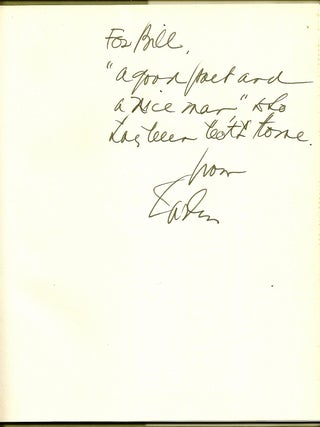 For Bill,
"a good poet and
a nice man" who
has been both to me.
from